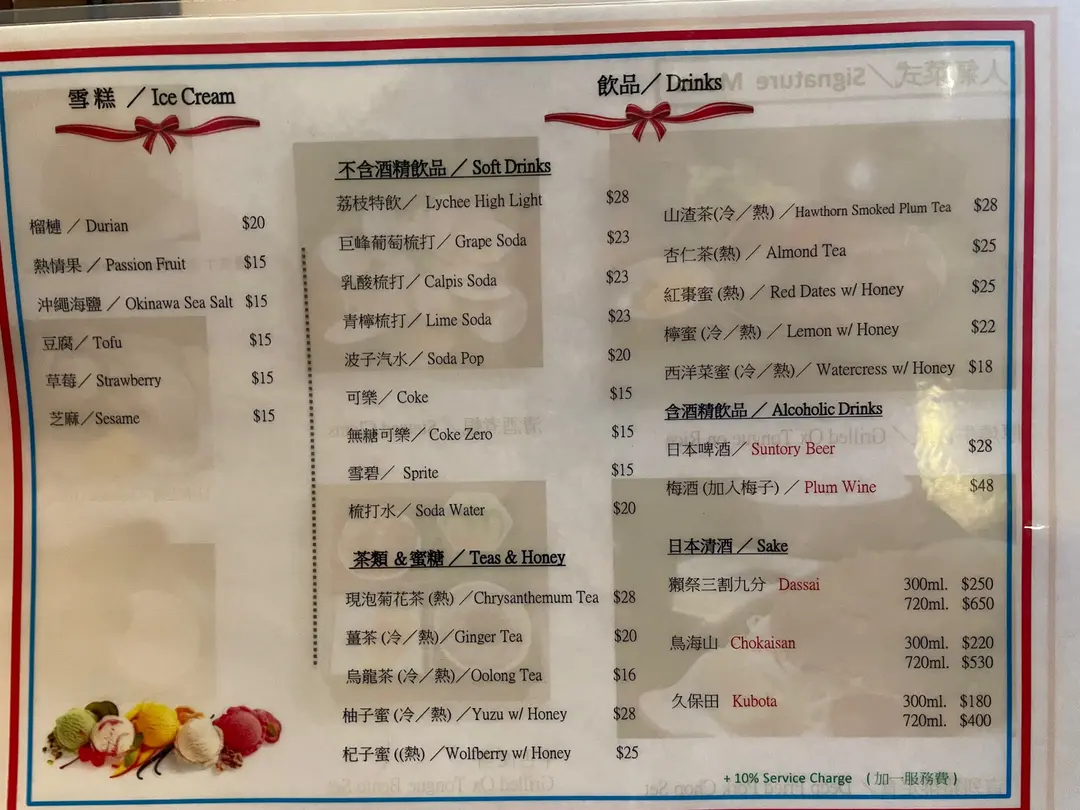 雪糕 ／ Ice Cream
榴槤 ／ Durian $20
熱情果 ／ Passion Fruit $15
沖繩海鹽 ／ Okinawa Sea Salt $15
豆腐／ Tofu $15
草莓／ Strawberry $15
芝麻／Sesame $15
飲品／ Drinks
不含酒精飲品 ／ Soft Drinks
荔枝特飲／ Lychee High Light $28
巨峰葡萄梳打／ Grape Soda $23
乳酸梳打／ Calpis Soda $23
青檸梳打／ Lime Soda $23
波子汽水／ Soda Pop $20
可樂／ Coke $15
無糖可樂／ Coke Zero $15
雪碧／ Sprite $15
梳打水／ Soda Water $20
茶類 ＆蜜糖 ／ Teas & Honey
現泡菊花茶 (熱) ／Chrysanthemum Tea $28
薑茶 (冷／熱)／Ginger Tea $20
烏龍茶 (冷／熱)／Oolong Tea $16
柚子蜜 (冷／熱) ／Yuzu w/ Honey $28
杞子蜜 ((熱) ／Wolfberry w/ Honey $25
山渣茶(冷／熱) ／Hawthorn Smoked Plum Tea $28
杏仁茶(熱) ／ Almond Tea $25
紅棗蜜 (熱) ／ Red Dates w/ Honey $25
檸蜜 (冷／熱) ／ Lemon w/ Honey $22
西洋菜蜜 (冷／熱)／ Watercress w/ Honey $18
含酒精飲品 ／ Alcoholic Drinks
日本啤酒／ Suntory Beer $28
梅酒 (加入梅子) ／ Plum Wine $48
日本清酒 ／ Sake
獺祭三割九分 Dassai 300ml. $250
720ml. $650
鳥海山 Chokaisan 300ml. $220
720ml. $530
久保田 Kubota 300ml. $180
720ml. $400
+ 10% Service Charge （ 加一服務費 ）